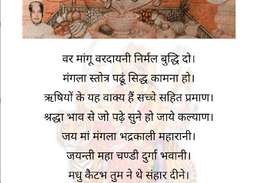 वर मांगू वरदायनी निर्मल बुद्धि दो।
मंगला स्तोत्र पढूं सिद्ध कामना हो।
ऋषियों के यह वाक्य हैं सच्चे सहित प्रमाण।
श्रद्धा भाव से जो पढ़े सुने हो जाये कल्याण।
जय मां मंगला भद्रकाली महारानी।
जयन्ती महा चण्डी दुर्गा भवानी।
मधु कैटभ तुम ने थे संहार दीने।